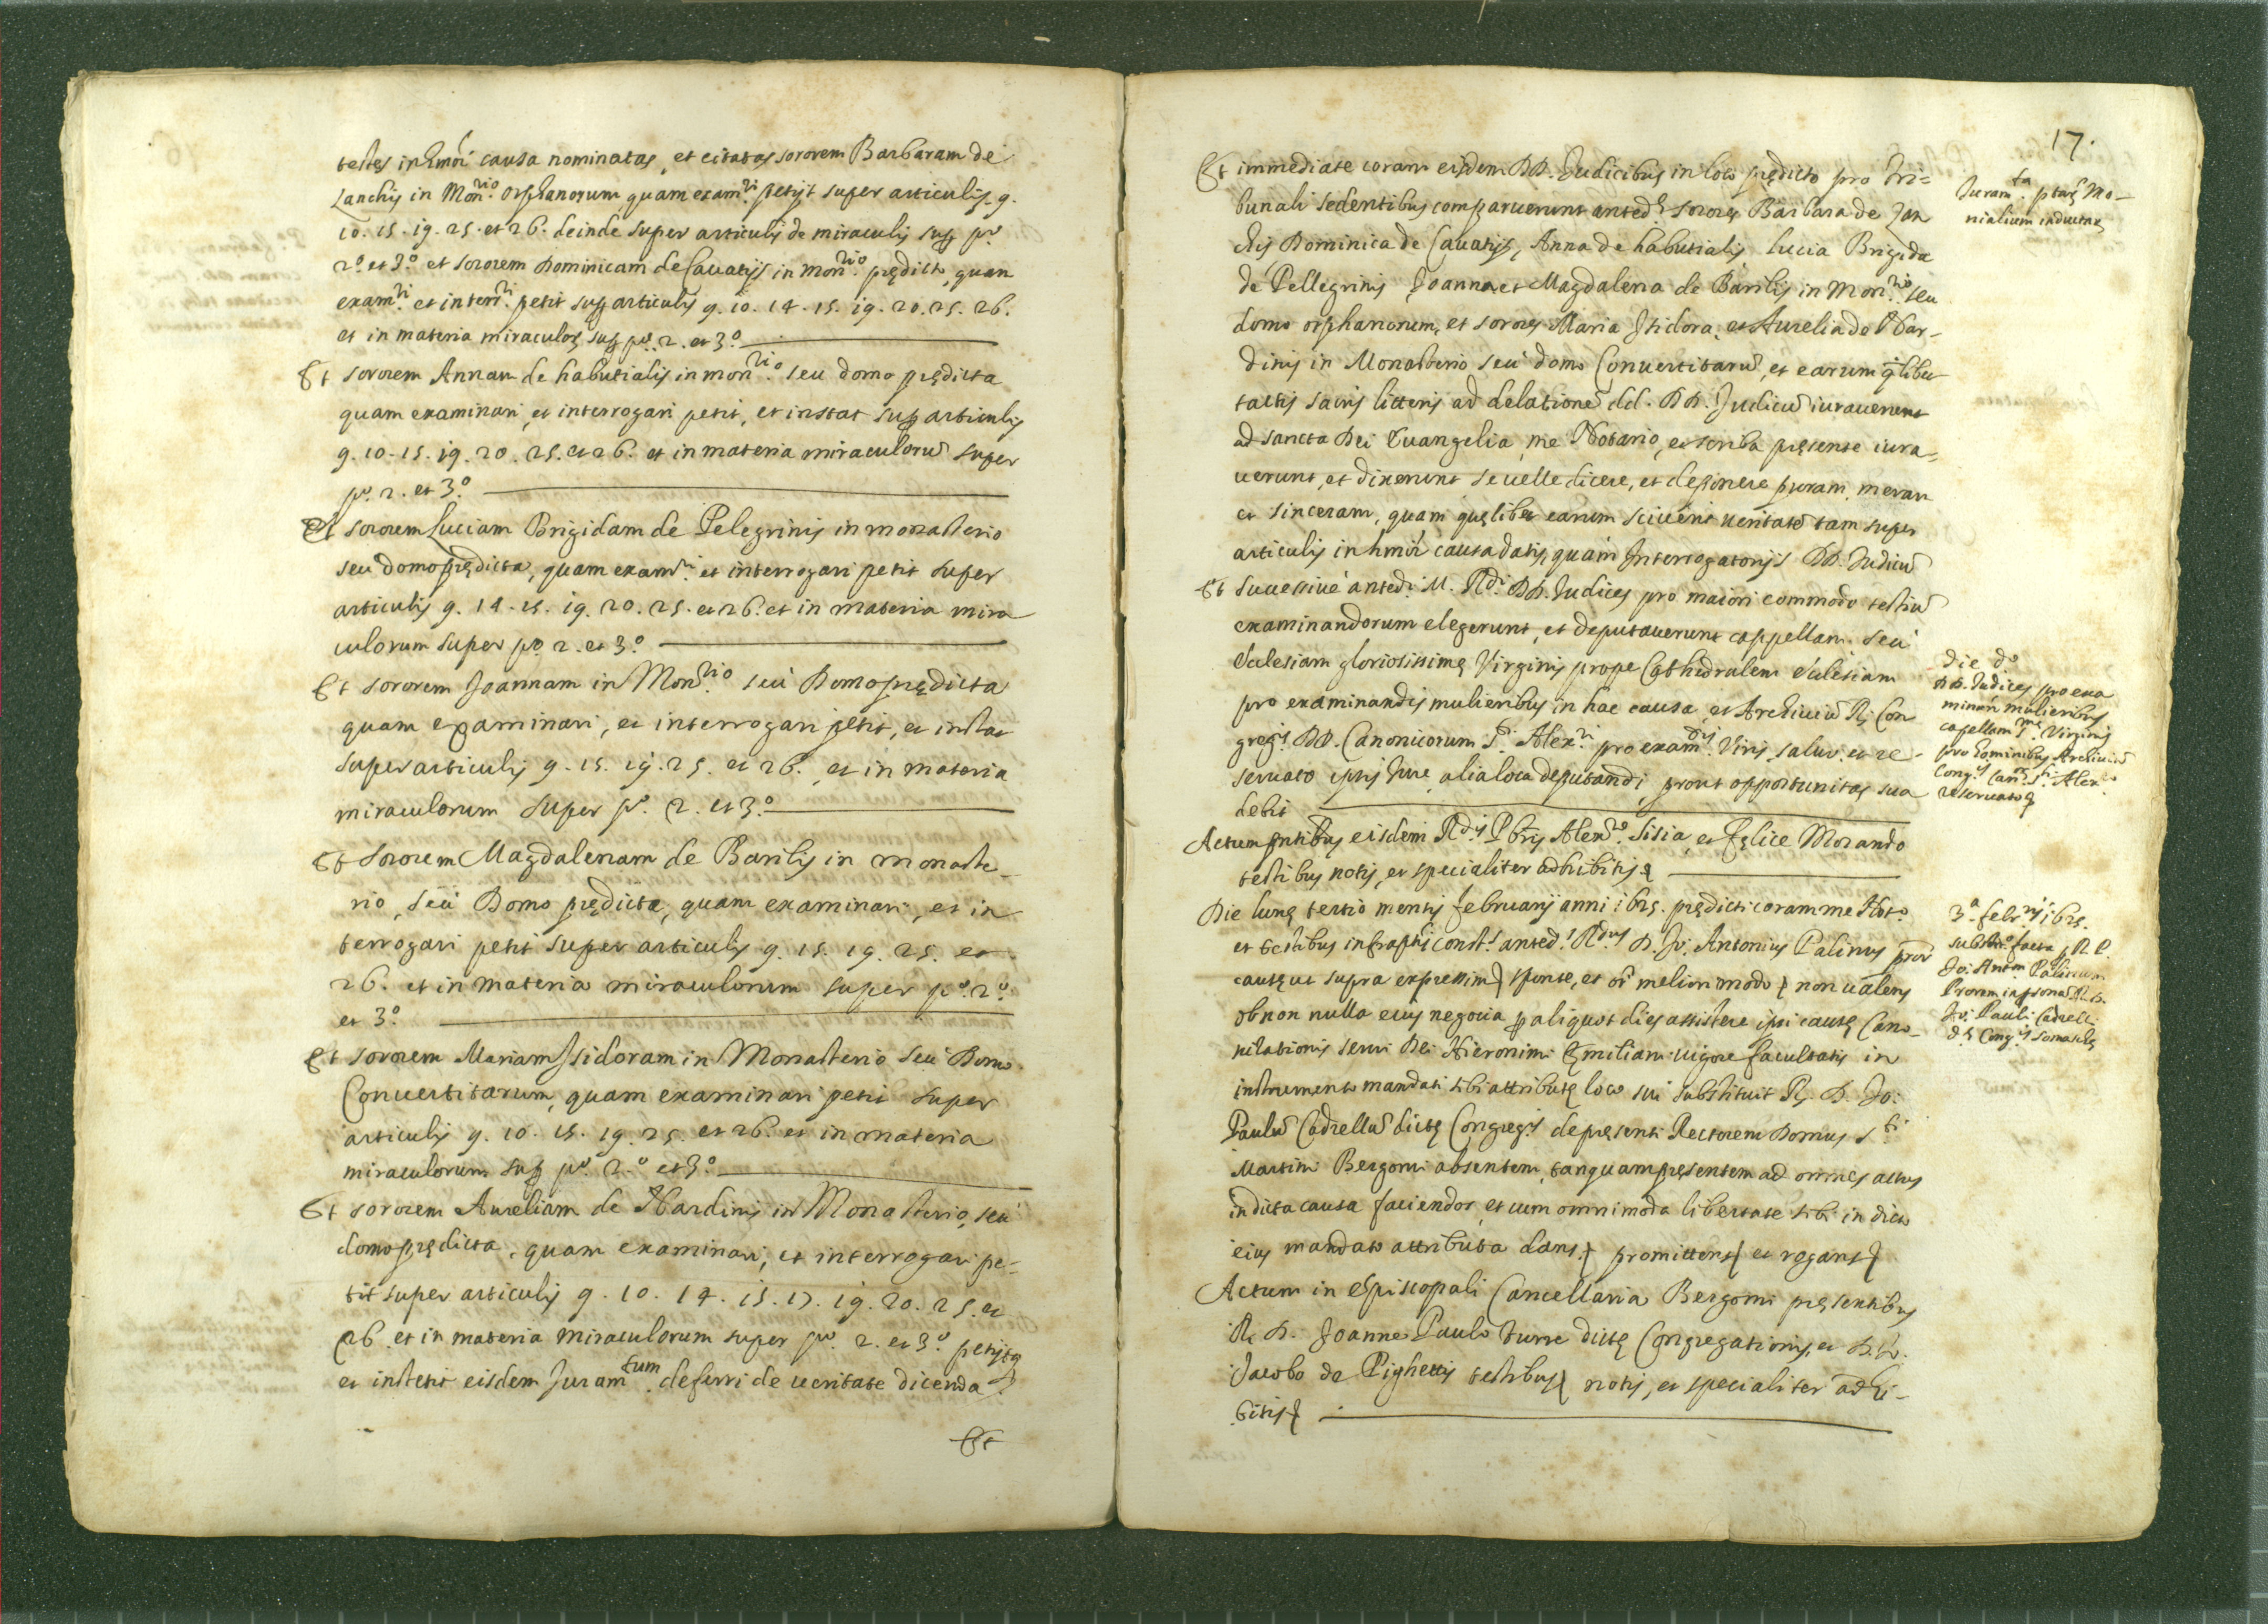 testes in hmõi causa nominatas, et citatas sororem Barbaram de
Zanchis in Mon.rio Orphanorum quam exam.ri petijt super articulis 9.
10. 15. 19. 25. et 26. deinde super articulis de miraculis sup p.o
2.o et 3.o et sororem Dominicam de Cavatijs in mon.rio prędicto, quam
exam.ri et interr.ri petit sup articulis 9. 10. 14. 15. 19. 20. 25. 26.
et in materia miraculor sup p.o 2. et 3.o
Et sororem Annam de habutialis in mon.rio seu domo prędicta
quam examinari, et interrogari petit, et instat sup articulis
9. 10. 15. 19. 20. 25. et 26. et in materia miraculorũ super
p.o 2. et 3.o
Et sororem Luciam Brigidam de Pelegrinis in monasterio
seu domo prędicta, quam exam.ri et interrogari petit super
articulis 9. 14. 15. 19. 20. 25. et 26. et in materia mira
culorum super p.o 2. et 3.o
Et sororem Joannam in Mon.rio seu Domo prędicta
quam examinari, et interrogari petit, et instat
super articulis 9. 15. 19. 25. et 26. et in materia
miraculorum super p.o 2. et 3.o
Et sororem Magdalenam de Barilis in monaste_
rio, seu Domo prędicta, quam examinari, et in
terrogari petit super articulis 9. 15. 19. 25. et
26. et in materia miraculorum super p.o 2.o
et 3.o
Et sororem Mariam Isidoram in Monasterio seu Domo
Convertitarum, quam examinari petit super
articulis 9. 10. 15. 19. 25. et 26. et in materia
miraculorum sup p.o 2.o et 3.o
Et sororem Aureliam de Nardinis in Monasterio, seu
domo prędicta, quam examinari, et interrogari pe=
tit super articulis 9. 10. 14. 15. 17. 19. 20. 25. et
26. et in materia miraculorum super p.o 2. et 3.o petijtq
et institit eisdem Juram.tum deferri de veritate dicenda
Et
17.
Et immediate coram eisdem DD. Judicibus in loco prędicto pro Tri=
bunali sedentibus comparuerunt anted.ę sorores Barbara de Zan
chis Dominica de Cavatijs, Anna de habutialis, Lucia Brigida
de Pellegrinis Joanna et Magdalena de Barilis in Mon.rio seu
domo orphanorum, et sorores Maria Isidora, et Aurelia de Nar_
dinis in Monasterio seu domo Convertitarũ, et earum qlibet
tactis sacris litteris ad delationẽ dd. DD. Judicũ iuraverunt
ad sancta Dei Evangelia, me Notario, et scriba pręsente iura=
verunt, et dixerunt se velle dicere, et deponere puram, meram
et sinceram, quam quęlibet earum sciverit veritatẽ tam super
articulis in hmõi causa datis, quam Interrogatorijs DD. Judicũ
Et successive anted.i M. R.di DD. Judices pro maiori commodo testiũ
examinandorum elegerunt, et deputaverunt cappellam seu
Ecclesiam gloriosissimę Virginis prope Cathedralem Ecclesiam
pro examinandis mulieribus in hac causa, et Archiviũ R. Con
greg.is DD. Canonicorum S.ti Alex.ri pro exam.dis Viris, salvo, et re=
servato ipsis Jure, alia loca deputandi, prout opportunitas sua
debit
Actum pntibus eisdem R.dis Pbris Alex.ro Sisia, et Felice Morando
testibus notis, et specialiter adhibitis
Die lunę tertio mensis februarij anni 1625. prędicti coram me Not.o
et testibus infraptis const.s anted.s R.dus D. Jo: Antonius Palinus pror
causę ut supra expressim sponte, et oi meliori modo non valens
ob non nulla eius negocia p aliquot dies assistere ipsi causę Cano_
nizationis servi Dei Hieronimi Ęmiliani vigore facultatis in
instrumento mandati sibi attributę loco sui substituit R. D. Jo:
Paulũ Cadrellũ dictę Congreg.is de presenti Rectorem Domus S.ti
Martini Bergomi absentem, tanquam pręsentem ad omnes actus
in dicta causa faciendos, et cum omnimoda libertate sibi in dicto
eius mandato attributa dans promittens et rogans
Actum in Episcopali Cancellaria Bergomi pręsentibus
R. D. Joanne Paulo Turre dictę Congregationis, et D. Jo.
Jacobo de Pighettis testibus notis, et specialiter adhi_
bitis
Juram.ta ptarũ Mo_
nialium inductarũ
Die d.o
DD. Judices pro exa
minan. mulieribus
capellam S.mę Virginis
pro hominibus Archiviũ
Cong.is Can.m S.ti Alex.ri
reservato
3.a febr.rij 1625.
substo facta p R. P.
Jo: Ant.m Palinum
Prorem in psona R. D.
Jo: Pauli Cadrelli
d.ę Cong.is Somaschę